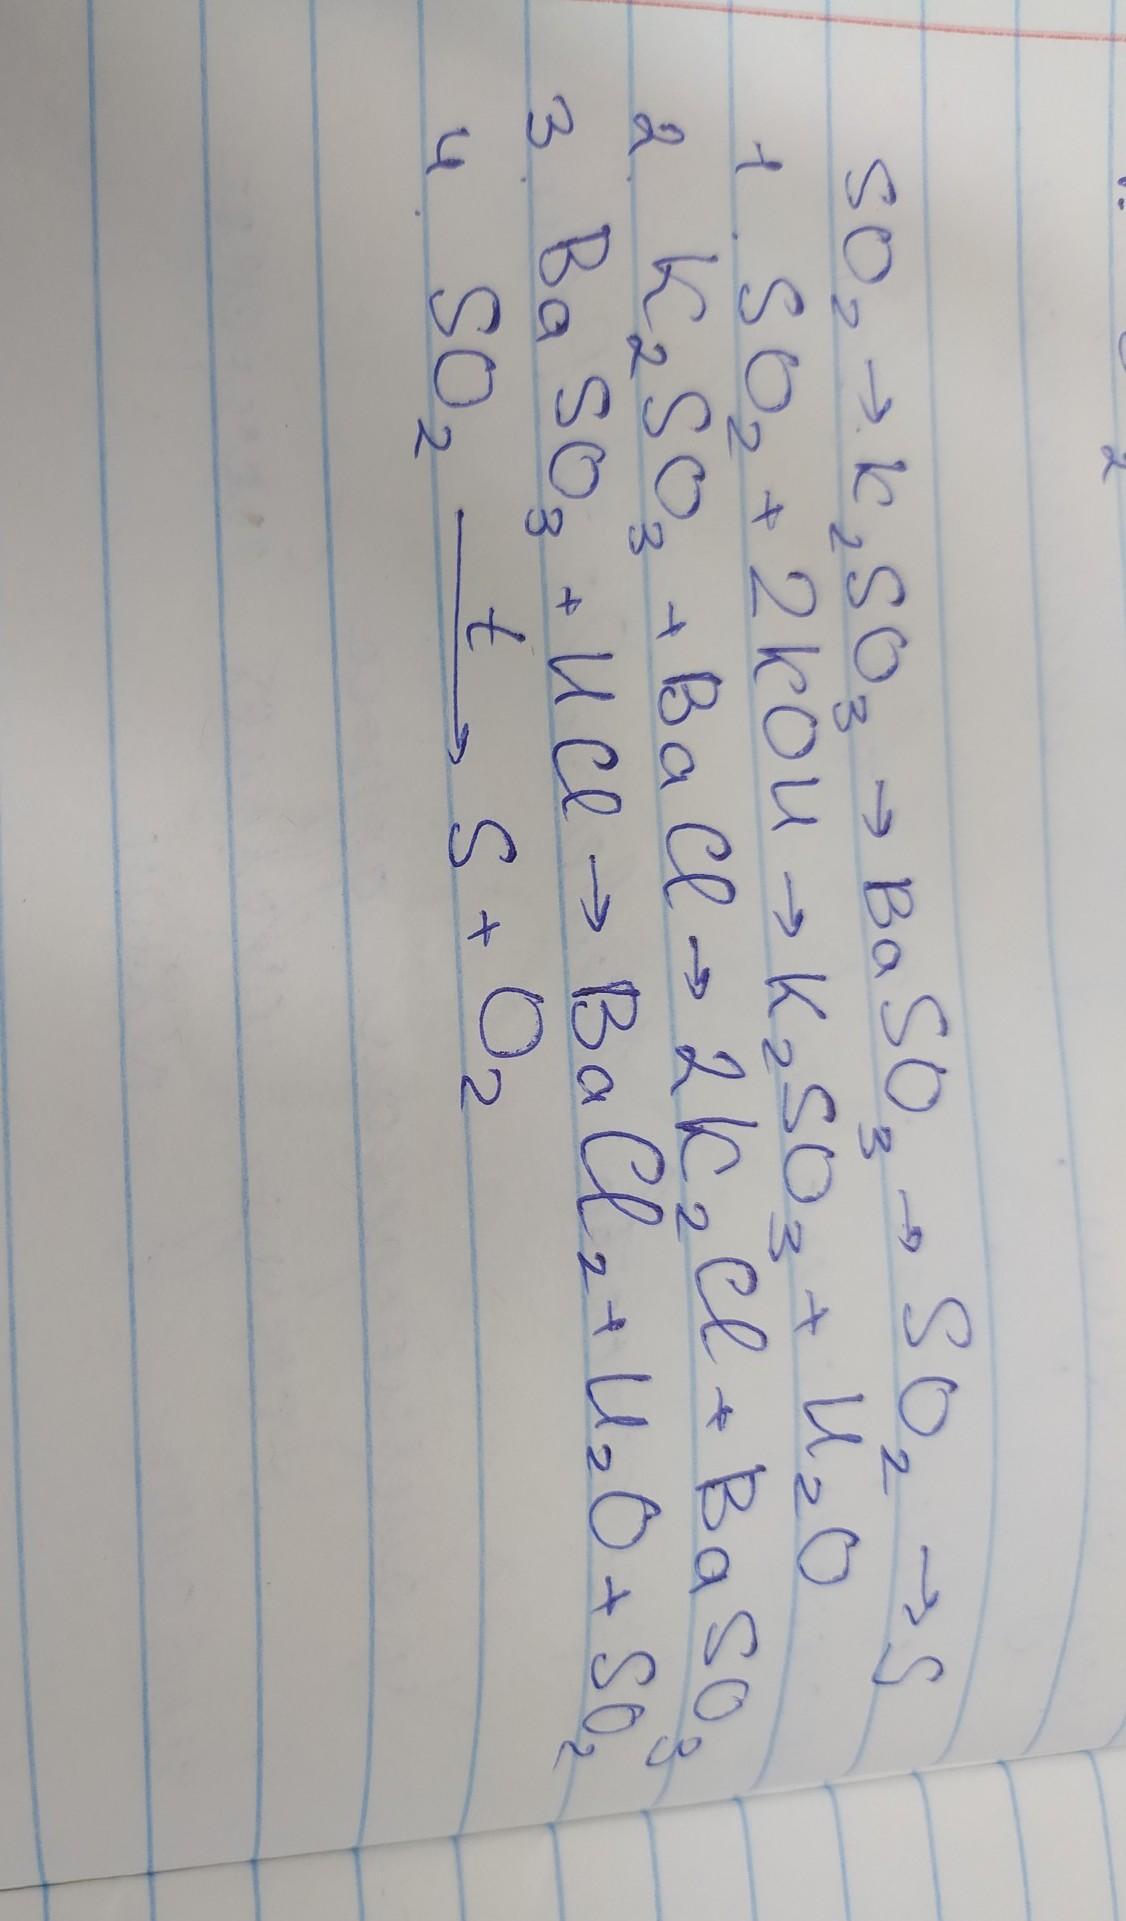 SO₂ → K₂SO₃ → BaSO₃ → SO₂ → S
1. SO₂ + 2KOH → K₂SO₃ + H₂O
2. K₂SO₃ + BaCl → 2K₂Cl + BaSO₃
3. BaSO₃ + HCl → BaCl₂ + H₂O + SO₂
4. SO₂ t→ S + O₂